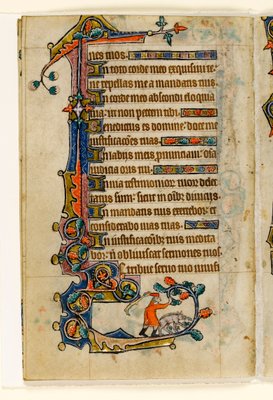 nes tuos.
In toto corde meo exquisiui te
ne repellas me a mandatis tuis
In corde meo abscondi eloquia
tua: ut non peccem tibi.
Benedictus es domine: doce me
iustificac̄ones tuas.
In labijs meis pronunciaui: om̄ia
iudicia oris tui.
In uia testimonior̄ tuor̄ delec
tatus sum: sicut in om̄ib; diuicijs
In mandatis tuis exercebor: et
considerabo uias tuas.
In iustificac̄oib; tuis medita
bor: nō obliuiscar sermones tuos
Retribue seruo tuo uiuifi